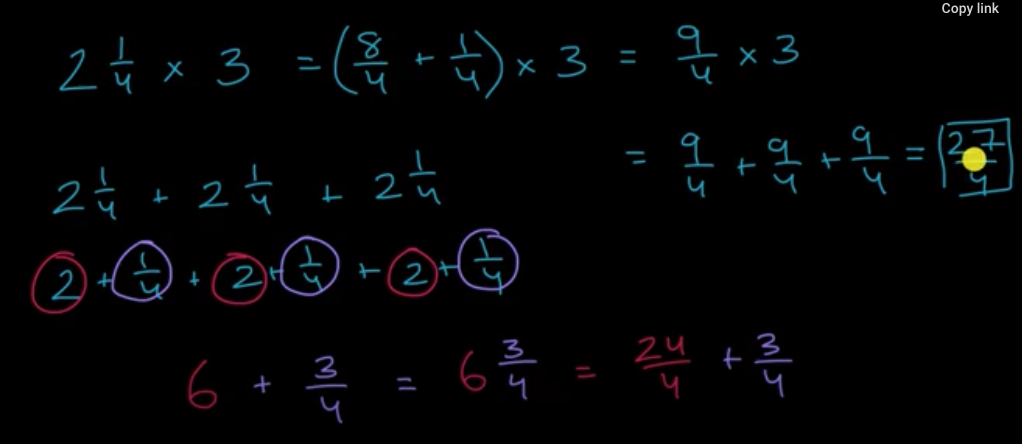 Copy link
2 1/4 × 3 = (8/4 + 1/4) × 3 = 9/4 × 3
= 9/4 + 9/4 + 9/4 = 27/4
2 1/4 + 2 1/4 + 2 1/4
2 + 1/4 + 2 + 1/4 + 2 + 1/4
6 + 3/4 = 6 3/4 = 24/4 + 3/4